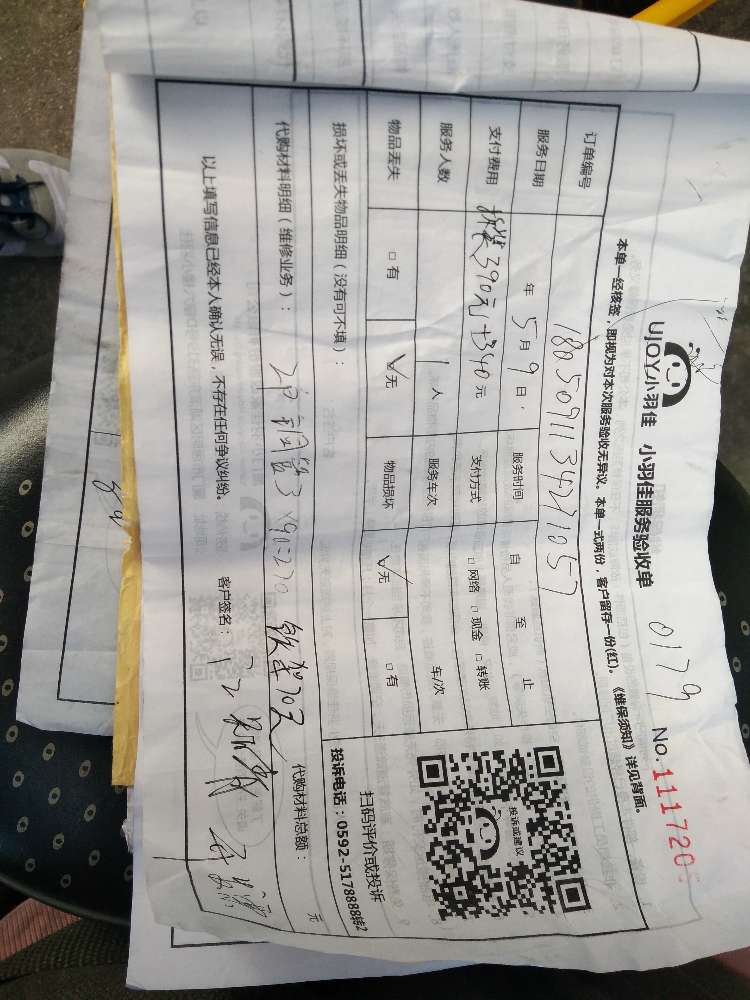 UJOY小羽佳 小羽佳服务验收单 0179 No.1117205
本单一经核签，即视为对本次服务验收无异议。本单一式两份，客户留存一份(红)。《维保须知》详见背面。
订单编号 1805091134271057
服务日期 年 5月 9日 服务时间 自 至 止
支付费用 拆装390元+340元 支付方式 □网络 □现金 □转账
服务人数 1人 服务车次 车/次
物品丢失 □有 √无 物品损坏 √无 □有
投诉或建议
扫码评价或投诉
投诉电话：0592-5178888转2
损坏或丢失物品明细（没有可不填）：
代购材料明细（维修业务）： 铜管3×90=270 铁架70元 代购材料总额： 元
以上填写信息已经本人确认无误，不存在任何争议纠纷。 客户签名：